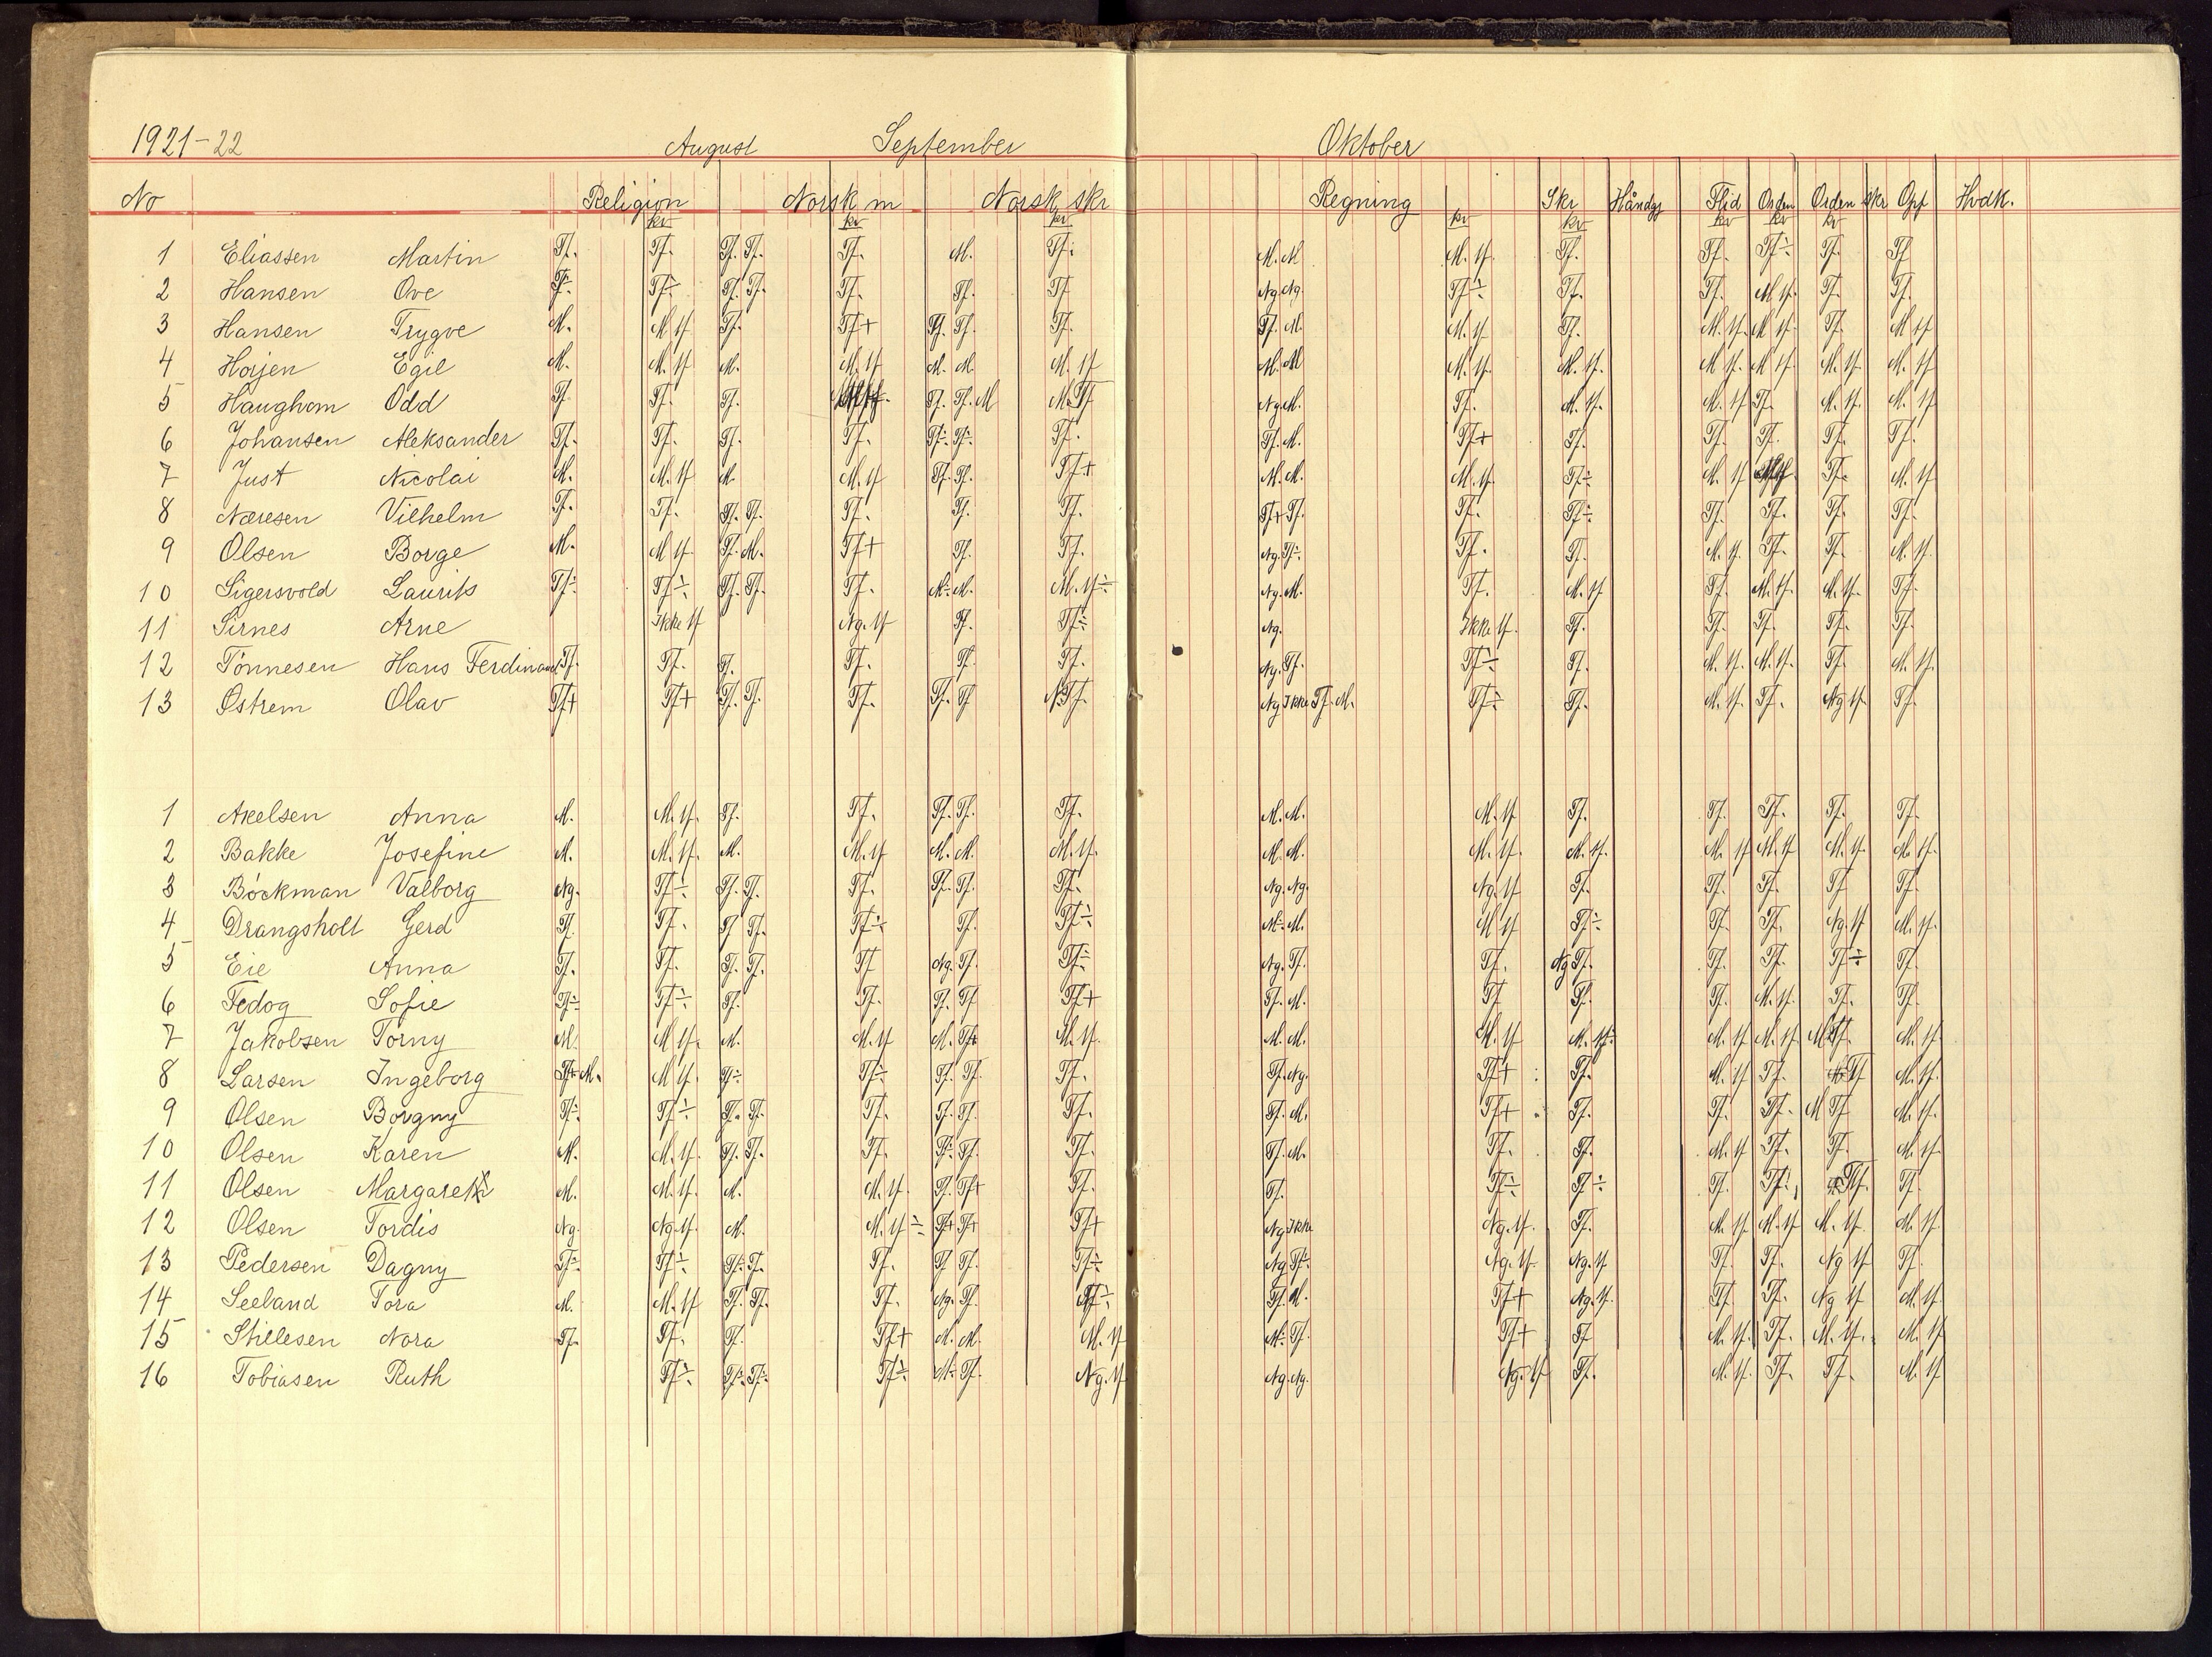 1921-22 August September Oktober
No Religion Norsk m Norsk skr Regning Skr Håndgj Flid Orden Orden skr Opf Hvdk.
kv kv kv kv kv kv kv kv
1 Eliassen Martin Tf. Tf. Tf. Tf. Tf. M. Tf. M. M M. tf. Tf. Tf. Tf÷ Tf. Tf
2 Hansen Ove Tf÷ Tf÷ Tf. Tf. Tf. Tf. Tf Ng. Ng. Tf÷ Tf. Tf. M tf. Tf. Tf.
3 Hansen Trygve M. M tf Tf. Tf+ Tf. Tf. Tf. Tf. M. M. tf Tf. M. tf. M tf. Tf. M tf
4 Horjen Egil M. M. tf M. M. tf M. M. M. tf M. M M. tf. M. tf. M tf. M tf M. tf M. tf
5 Haughom Odd Tf. Tf. Tf. Tf. Tf. M M. Tf Ng. M. Tf. M. tf. M. tf Tf. M. tf. M. tf
6 Johansen Aleksander Tf. Tf. Tf. Tf. Tf÷ Tf÷ Tf. Tf. M. Tf+ Tf. Tf. Tf. Tf. Tf.
7 Just Nicolai M. M. tf M. M. tf Tf. Tf. Tf+ M. M. M. tf. Tf÷ M. tf Tf. M. tf
8 Næresen Vilhelm Tf. Tf. Tf. Tf. Tf. Tf. Tf. Tf+ Tf. Tf. Tf÷ Tf. Tf. Tf. Tf.
9 Olsen Borge M. M tf. Tf. M. Tf+ Tf. Tf. Ng. Tf÷ Tf. Tf. M. tf. Tf. Tf. M. tf
10 Sigersvold Laurits Tf÷ Tf÷ Tf. Tf. Tf. M÷ M. M. tf÷ Ng. M. Tf. M. tf Tf. M. tf. M. tf. Tf.
11 Sirnes Arne Ikke tf Ng. tf Tf. Tf÷ Ng. Ikke tf. Tf. Tf. Tf. Tf. Tf.
12 Tönnesen Hans Ferdinand Tf. Tf. Tf. Tf. Tf. Tf. Ng. Tf. Tf÷ Tf. M. tf. M. tf. Tf. M. tf.
13 Østrem Olav Tf+ Tf+ Tf. Tf. Tf. Tf. Tf Tf. Ng Ikke Tf. M. Tf÷ Tf. M. tf. Tf. Ng tf. Tf.
1 Axelsen Anna M. M. tf. Tf. Tf. Tf. Tf. Tf. M. M. M. tf Tf. Tf. Tf. Tf. Tf.
2 Bakke Josefine M. M. tf. M. M. tf M. M. M. tf. M. M. M. tf. M. tf. M. tf M. tf M. tf. M. tf.
3 Böckman Valborg Ng. Tf÷ Tf. Tf. Tf. Tf. Tf. Tf. Ng. Ng. Ng. tf Tf. Tf. Tf. Tf Tf.
4 Drangsholt Gerd Tf. Tf. Tf Tf. Tf÷ Tf. Tf÷ M÷ M. M tf Tf÷ Tf. Tf. Ng. tf M. tf.
5 Eie Anna Tf. Tf. Tf. Tf. Tf Ng. Tf. Tf÷ Ng. Tf. Tf. Ng Tf. Tf. Tf. Tf÷ Tf.
6 Fedog Sofie Tf÷ Tf÷ Tf. Tf. Tf. Tf Tf+ Tf. M. Tf Tf. Tf. M. tf. Tf. Tf.
7 Jakobsen Torny M. M tf. M. M. tf M. Tf+ M. tf. M. M. M. tf M. tf÷ M. tf M. tf M. tf.
8 Larsen Ingeborg Tf÷ M. M tf. Tf÷ Tf÷ Tf. Tf. Tf. Tf. Ng. Tf+ Tf. M. tf Tf. Tf M. tf.
9 Olsen Borgny Tf÷ Tf÷ Tf. Tf. Tf. Tf. Tf. Tf. Tf. M. Tf+ Tf. Tf. Tf. M Tf M. tf.
10 Olsen Karen M. M. tf. Tf. Tf. Tf. Tf÷ Tf. Tf. Tf. M. Tf. Tf. M. tf Tf. Tf. M. tf.
11 Olsen Margareth M. M. tf. M. M. tf. Tf. Tf+ Tf. Tf. Tf÷ Tf÷ Tf. Tf. Tf. Tf.
12 Olsen Tordis Ng. Ng. tf. M. M. tf÷ Tf+ Tf+ Tf+ Ng Ikke Ng. tf. Tf. M. tf M. tf M. tf. M. tf
13 Pedersen Dagny Tf÷ Tf÷ Tf÷ Tf. Tf. Tf Tf. Tf÷ Ng Tf÷ Ng. tf. Ng. tf Tf. Tf. Ng tf Tf.
14 Seeland Tora M. M. tf Tf. Tf. Tf. Ng. Tf. Tf÷ Tf. M. Tf+ Ng. tf. Tf Tf. Ng tf M. tf
15 Stillesen Nora Tf. Tf. Tf. Tf+ M. M. M. tf M÷ Tf. Tf+ Tf M. tf. Tf. M. tf. M. tf
16 Tobiasen Ruth Tf÷ Tf÷ Tf÷ Tf÷ M÷ Tf. Ng. tf Ng. Ng. Ng. tf Tf. M. tf. Tf. Tf. M. tf